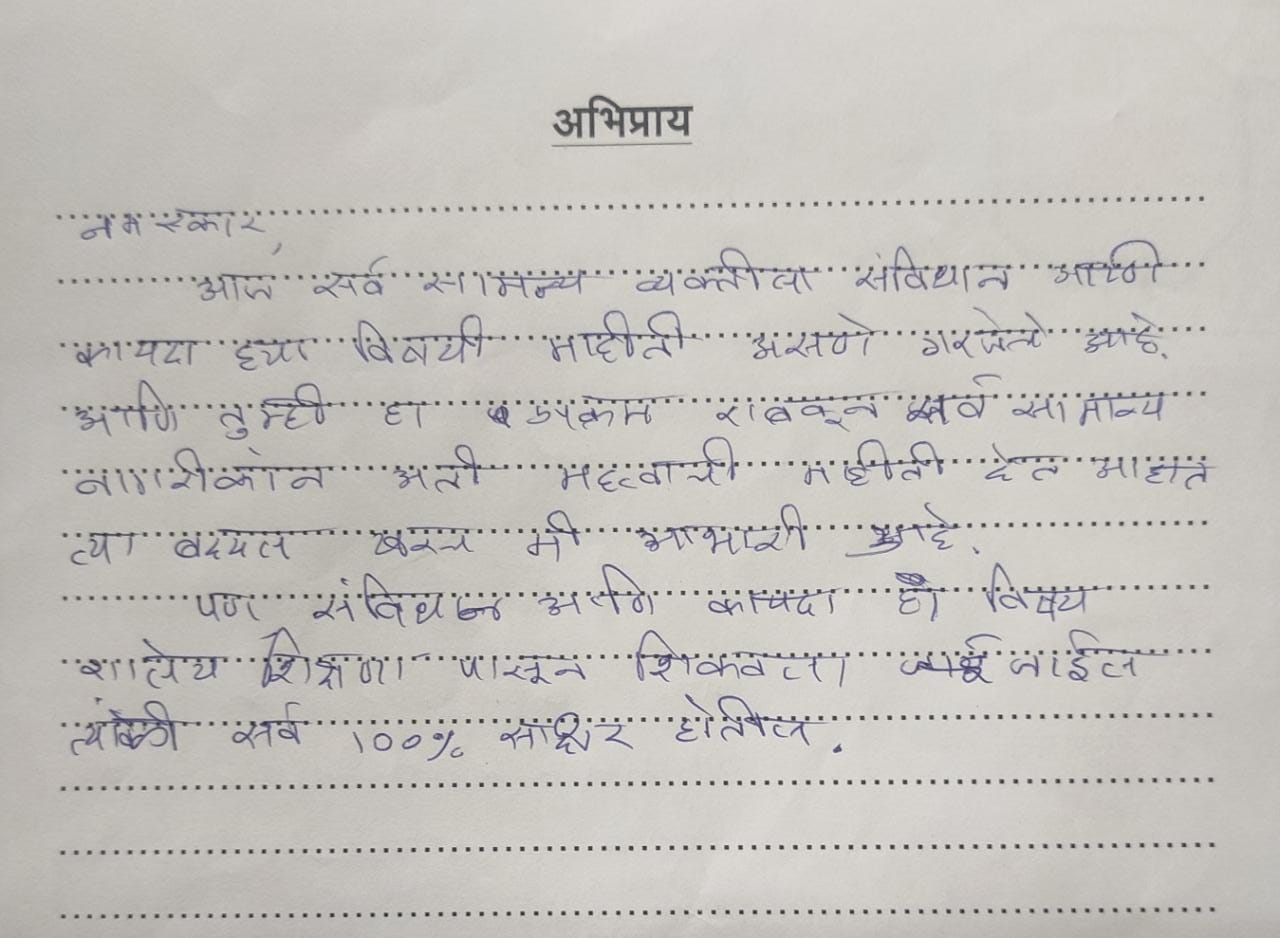 अभिप्राय
नमस्कार,
आज सर्व सामन्य व्यक्तीला संविधान आणि
कायदा ह्या विषयी माहीती असणे गरजेचे आहे.
आणि तुम्ही हा उपक्रम राबवून सर्व सामान्य
नागरीकांन अती महत्वाची माहीती देत आहात
त्या बद्दल खरच मी आभारी आहे.
पण संविधान आणि कायदा हा विषय
शालेय शिक्षणा पासून शिकवला जाईल
त्यावेळी सर्व 100% साक्षर होतील.